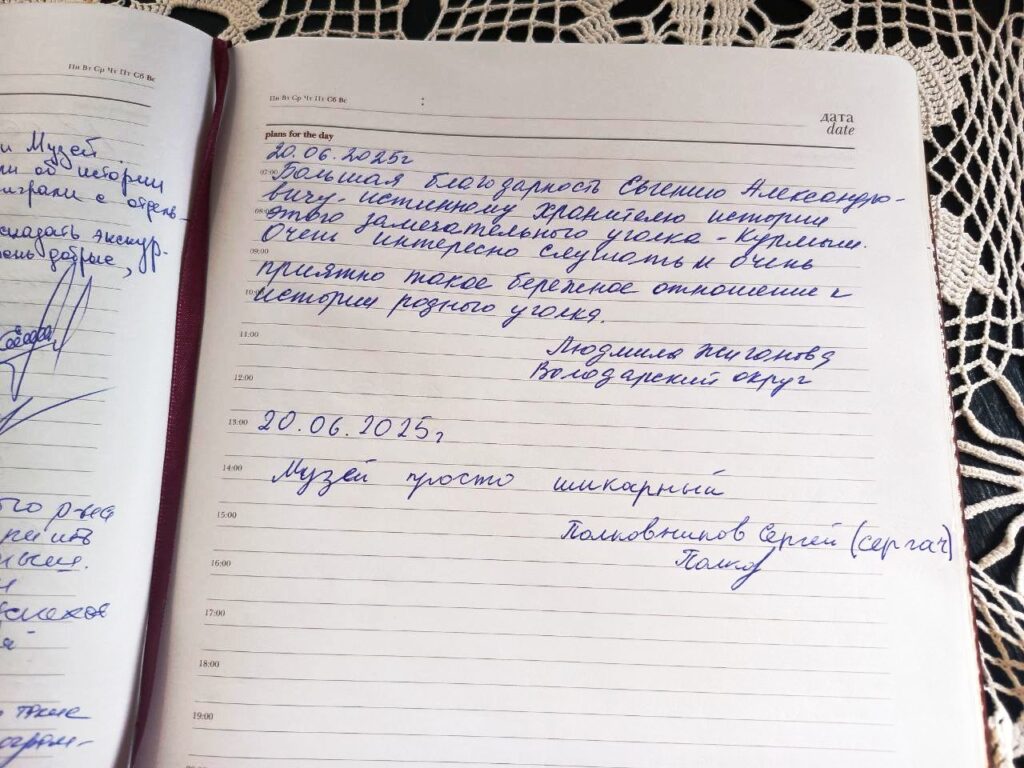 Пн Вт Ср Чт Пт Сб Вс
и Музей.
ли об истории
играли с отдень-
сладать экскур-
ень добрые,
того рже
ным.
успехов
й
такие
Пн Вт Ср Чт Пт Сб Вс :
дата
date
plans for the day
20.06.2025г
07:00
Большая благодарность Евгению Александро-
вичу, истинному хранителю истории
08:00
этого замечательного уголка - Курмыш.
Очень интересно слушать и очень
09:00
приятно такое бережное отношение к
10:00
истории родного уголка.
11:00
Людмила Жиганова
Володарский округ
12:00
13:00
20.06.2025г
14:00
Музей просто шикарный
15:00
Полковников Сергей (сергач)
Полков
16:00
17:00
18:00
19:00